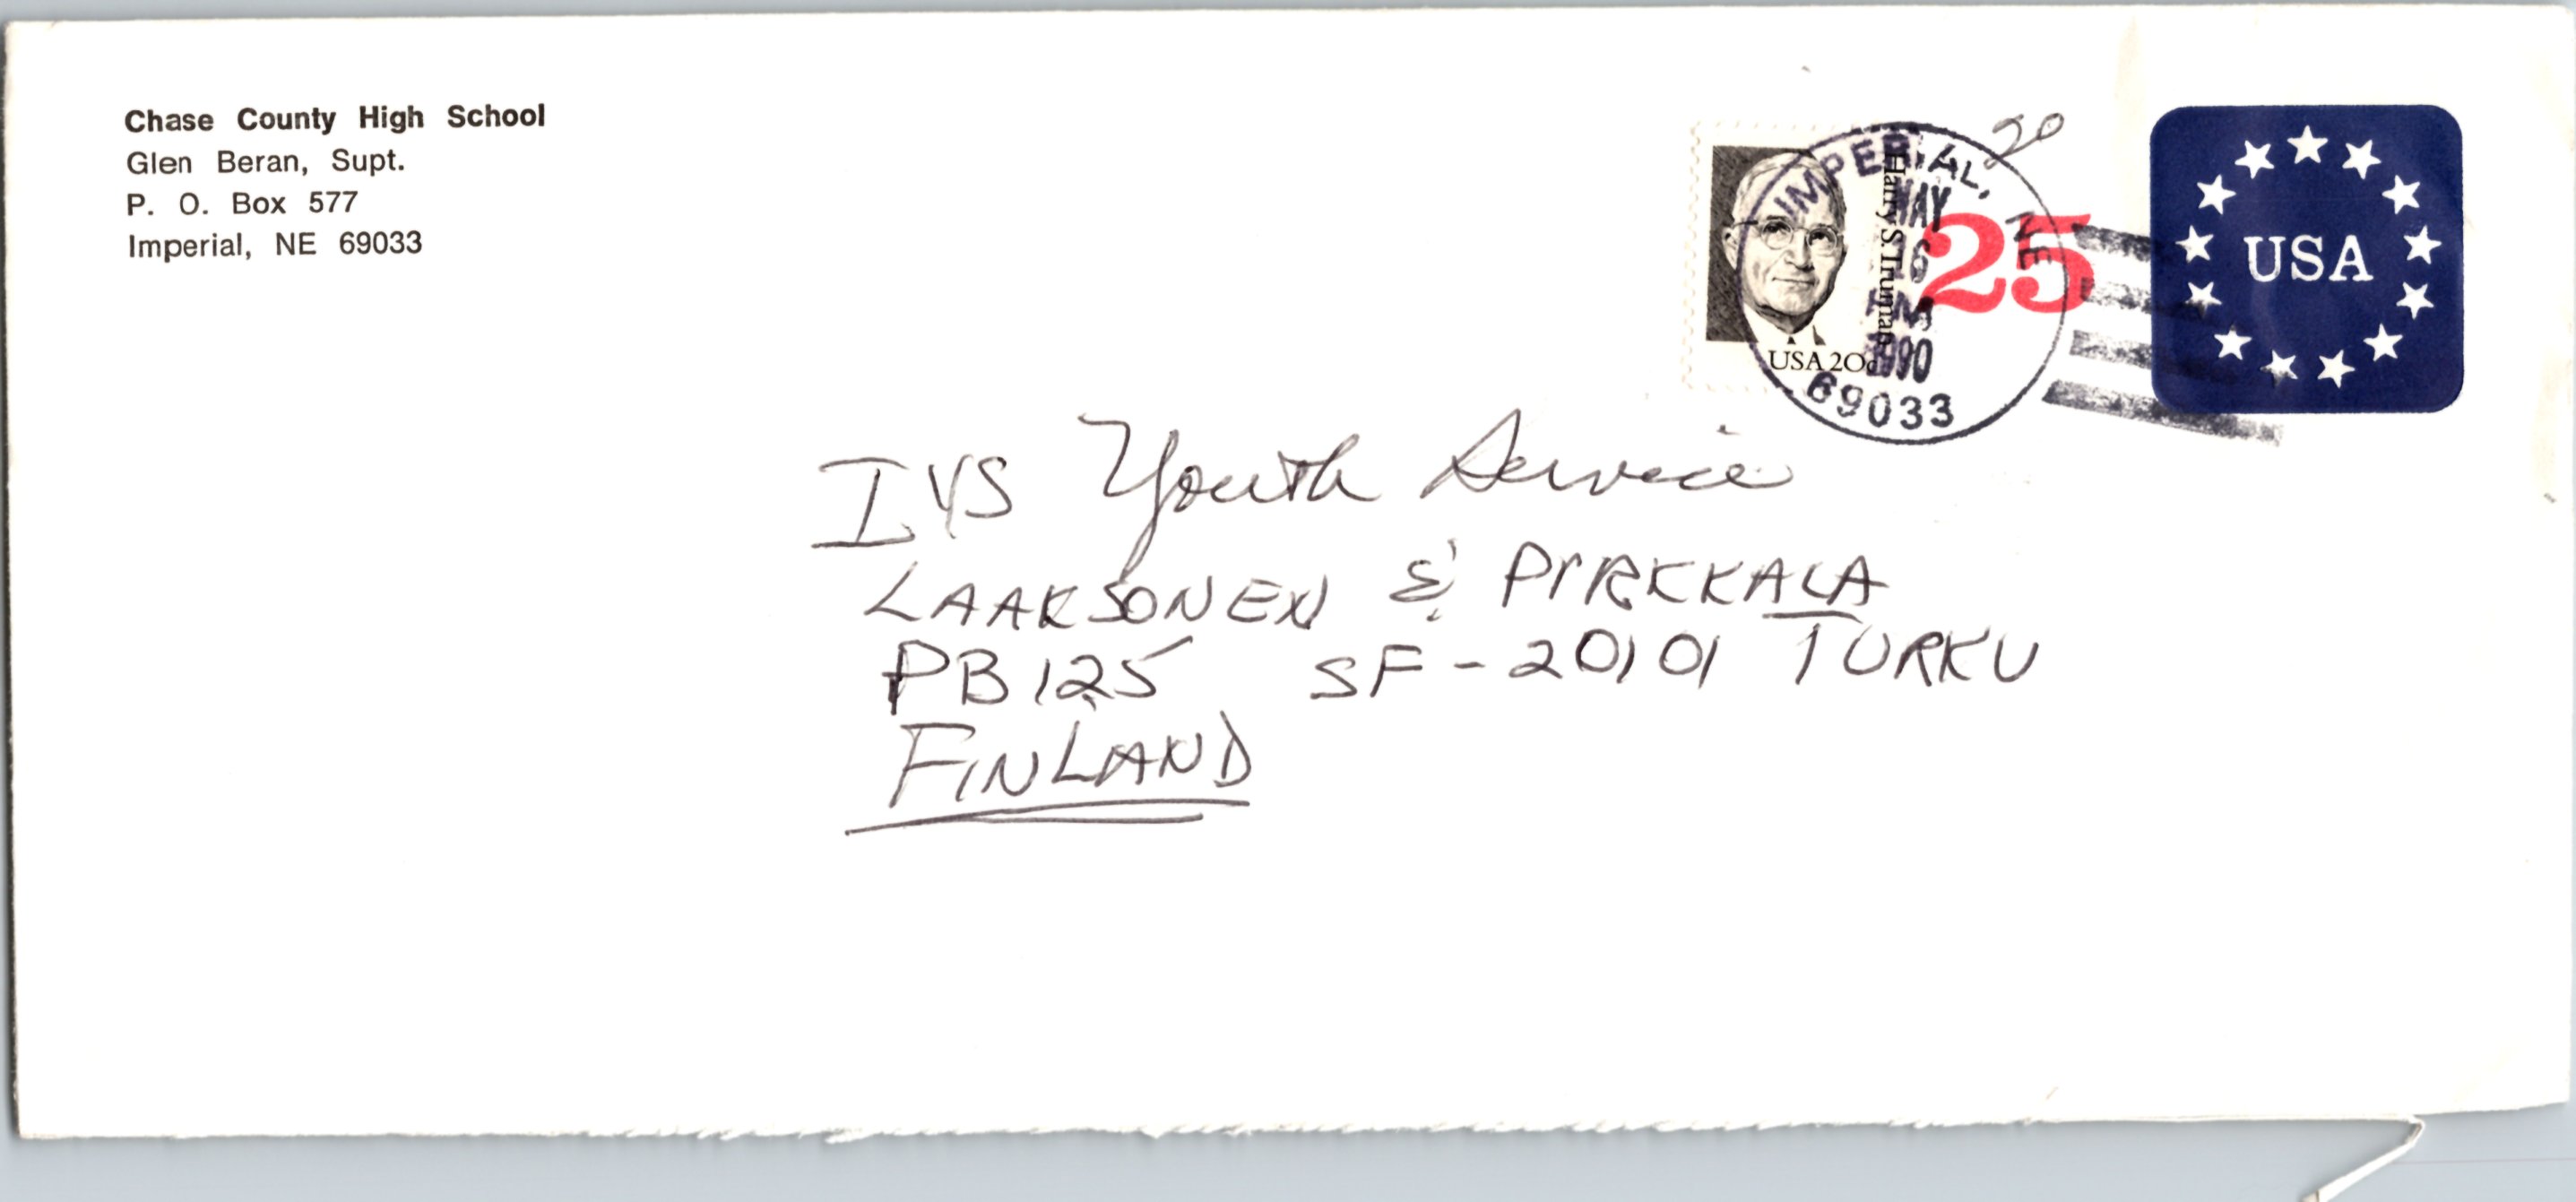 Chase County High School
Glen Beran, Supt.
P. O. Box 577
Imperial, NE 69033
20
Harry S. Truman
USA 20c
IMPERIAL, NE
MAY
16
PM
1990
69033
25
USA
IYS Youth Service
LAAKSONEN & PIRKKALA
PB 125 SF-20101 TURKU
FINLAND